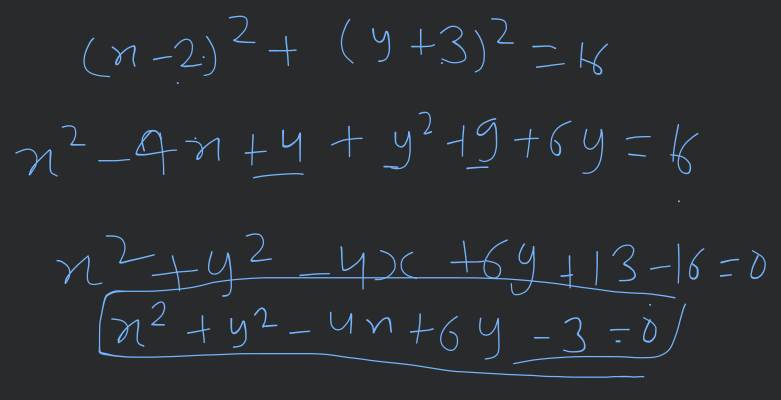 (x-2)² + (y+3)² = 16
x² - 4x + 4 + y² + 9 + 6y = 16
x² + y² - 4x + 6y + 13 - 16 = 0
x² + y² - 4x + 6y - 3 = 0